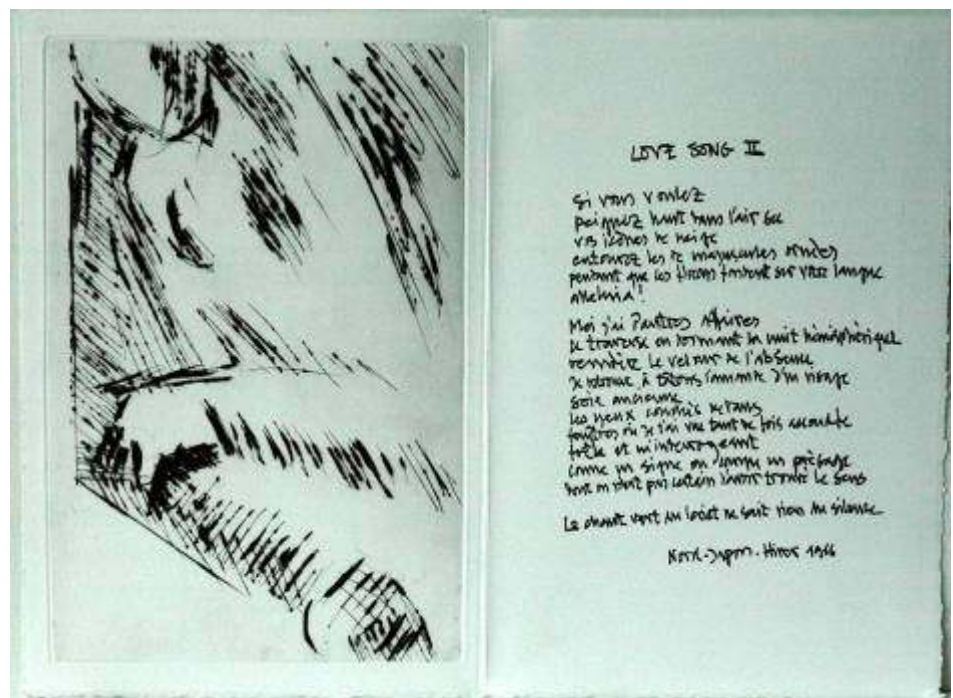 LOVE SONG II
Si vous voulez
peignez haut dans l'air sec
vos icônes de neige
entourez les de majuscules ornées
pendant que les flocons fondent sur votre langue
alleluia!
Moi j'ai d'autres affaires
je traverse en dormant la nuit hémisphérique
derrière le velours de l'absence
je retrouve à tâtons l'amande d'un visage
soie ancienne
les yeux
où je t'ai vue tant de fois accoudée
frêle et m'interrogeant
comme un signe ou comme un présage
dont on n'est pas certain d'avoir trouvé le sens
Le chant vert du loriot ne sait rien du silence
Nord-Japon. Hiver 1966